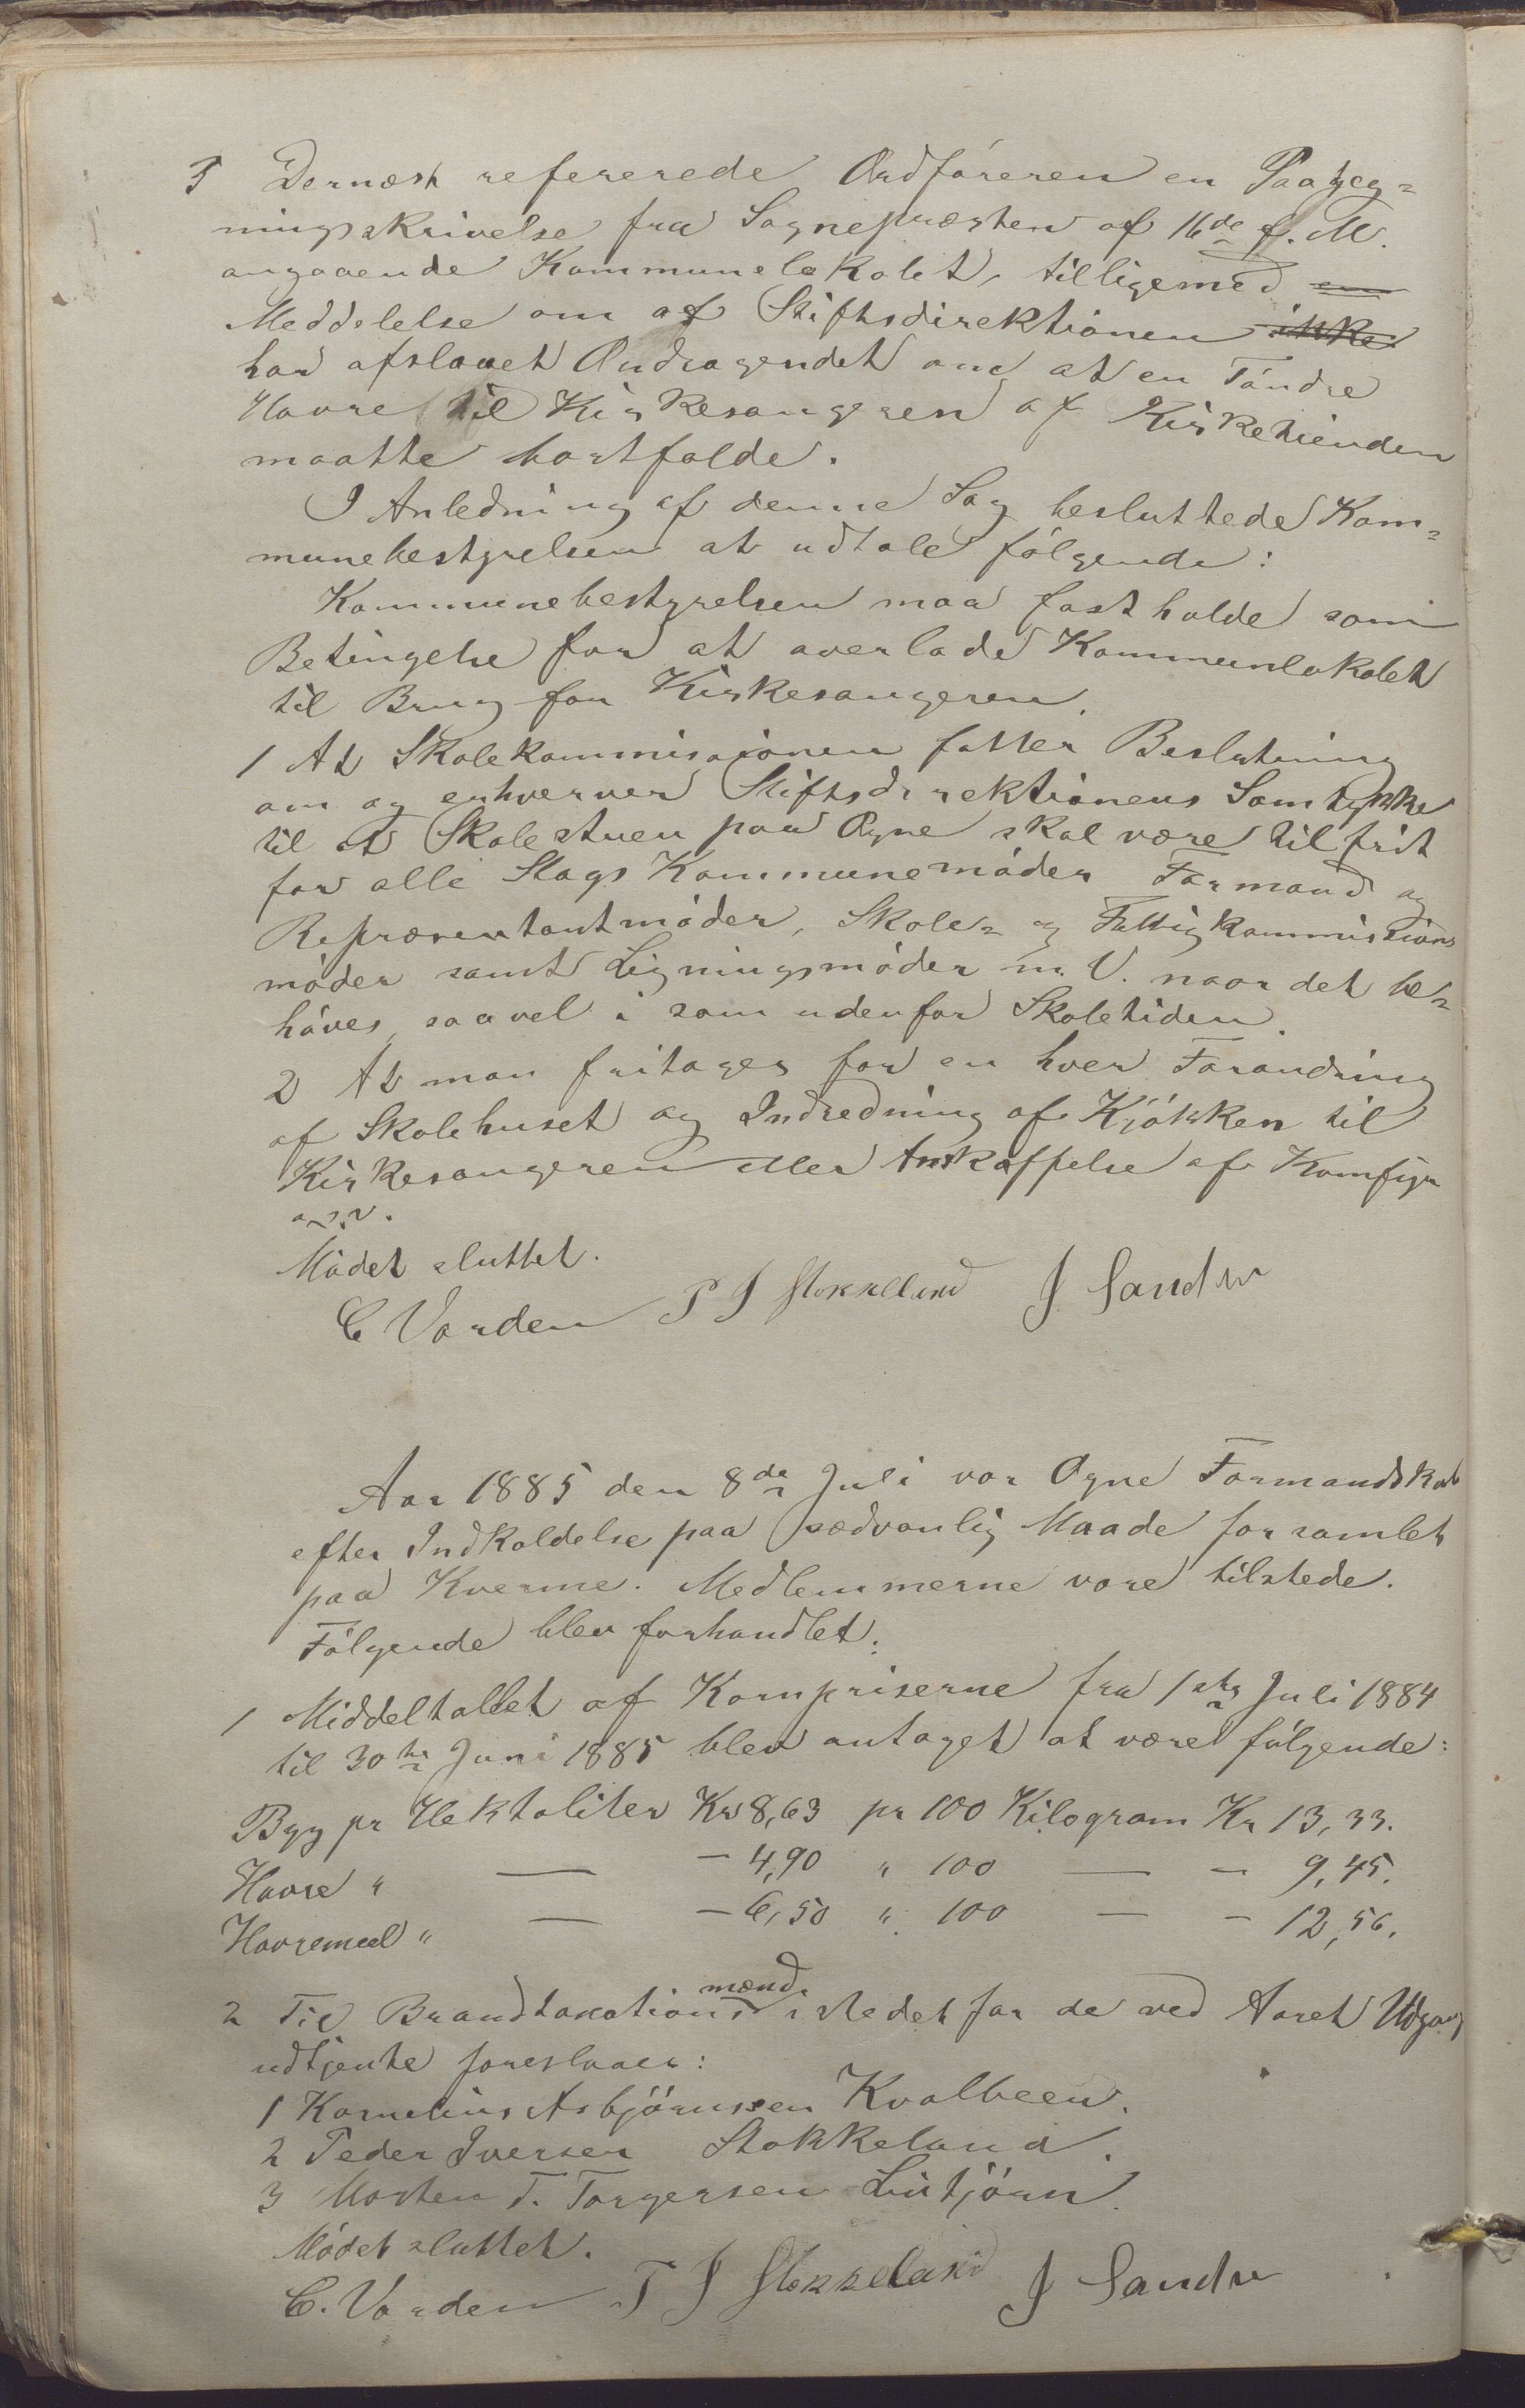 5 Dernæst refererede Ordføreren en Paateg=
ningsskrivelse fra Sognepræsten af 16de f. M.
angaaende Kommunelokalet, tilligemed en
Meddelelse om at Stiftsdirektionen ikke
har afslaaet Andragendet om at en Tøndre
Havre til Kirkesangeren af Kirketienden
maatte bortfalde.
I Anledning af denne Sag besluttede Kom=
munebestyrelsen at udtale følgende:
Kommunebestyrelsen maa fastholde som
Betingelse for at overlade Kommunlokalet
til Brug for Kirkesangeren.
1 At Skolekommissionen fatter Beslutning
om og erhverver Stiftsdirektionens Samtykke
til at Skolestuen paa Ogne skal være til frit
for alle Slags Kommunemøder Formand og
Repræsentantmøder, Skole= og Fattigkommissions
møder samt Ligningsmøder m. V. naar det be=
høves, saavel i som udenfor Skoletiden.
2 At man fritages for en hver Forandring
af Skolehuset og Indredning af Kjøkken til
Kirkesangeren eller Anskaffelse af Komfyr
o.s.v.
Mødet sluttet.
C Varden P J Stokkeland J Sandve
Aar 1885 den 8de Juli var Ogne Formandskab
efter Indkaldelse paa sædvanlig Maade forsamlet
paa Kverme. Medlemmerne vare tilstede.
Følgende blev forhandlet:
1 Middeltallet af Kornpriserne fra 1ste Juli 1884
til 30te Juni 1885 blev antaget at være følgende:
Byg pr Hektoliter Kr 8,63 pr 100 Kilogram Kr 13,33.
Havre " — - 4,90 " 100 — - 9,45.
Havremeel " — - 6,50 " 100 — - 12,56.
2 Til Brandtaxationsmænd i stedet for de ved Aaret Udgang
udtjente foreslaaes:
1 Kornelius Asbjørnssen Kvalbeen.
2 Peder Iversen Stokkeland.
3 Morten T. Torgersen Lintjørn.
Mødet sluttet.
C. Varden P J Stokkeland J Sandve